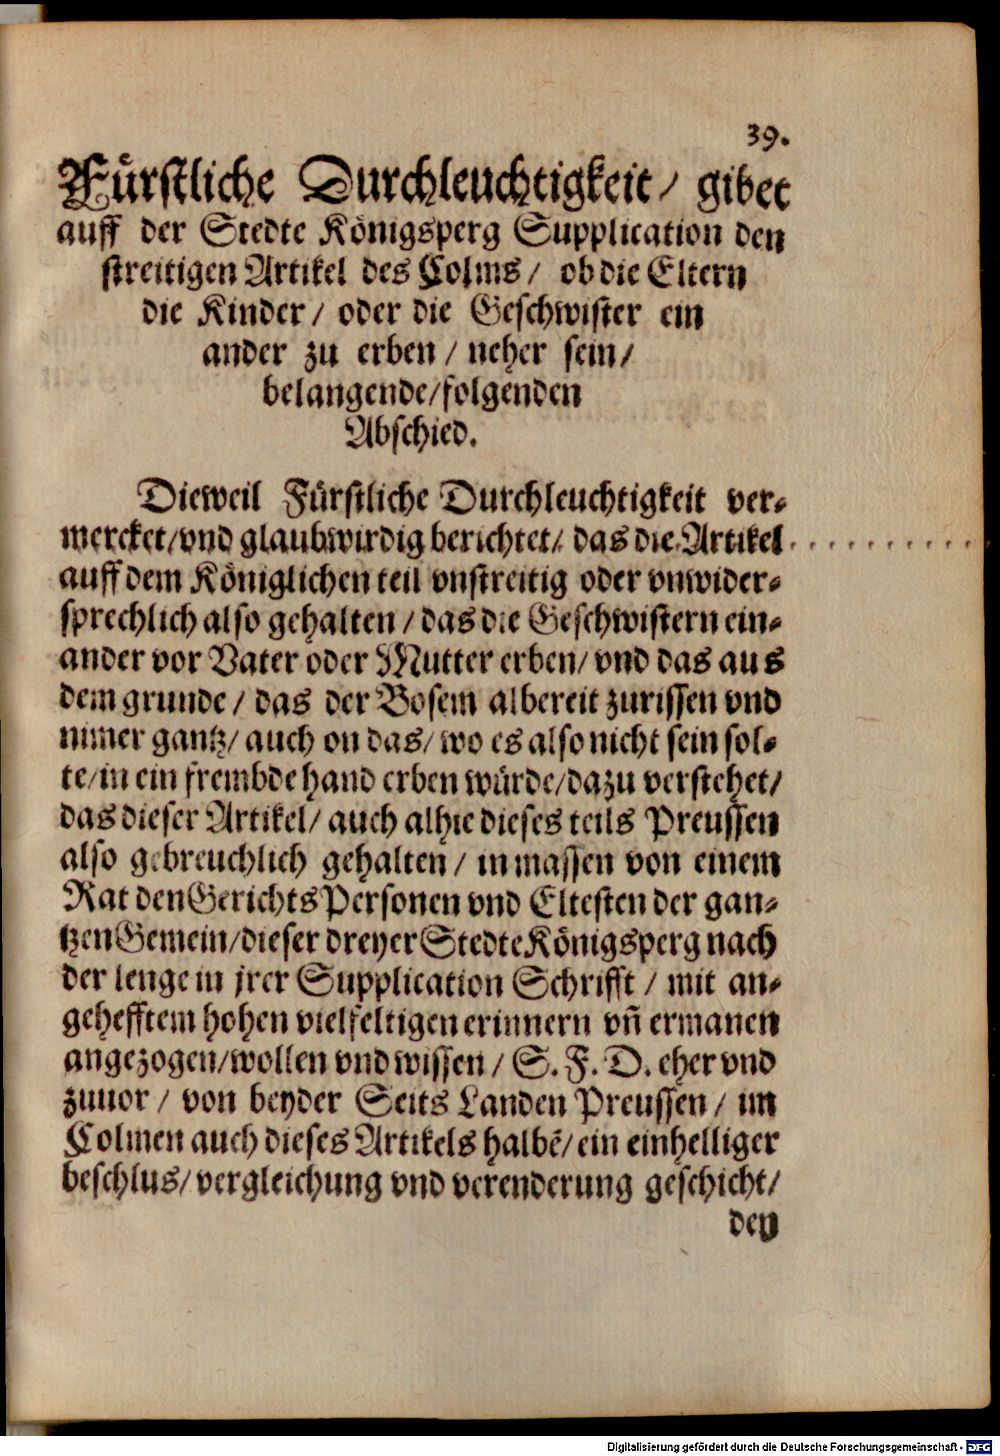 39.
Fürstliche Durchleuchtigkeit / gibet
auff der Stedte Königsperg Supplication den
streitigen Artikel des Colms / ob die Eltern
die Kinder / oder die Geschwister ein
ander zu erben / neher sein /
belangende/folgenden
Abschied.
Dieweil Fürstliche Durchleuchtigkeit ver-
mercket/vnd glaubwirdig berichtet/ das die Artikel
auff dem Königlichen teil vnstreitig oder vnwider-
sprechlich also gehalten / das die Geschwistern ein-
ander vor Vater oder Mutter erben/ vnd das aus
dem grunde / das der Bosem albereit zurissen vnd
nimer gantz/ auch on das/ wo es also nicht sein sol-
te/in ein frembde hand erben würde/dazu verstehet/
das dieser Artikel/ auch alhie dieses teils Preussen
also gebreuchlich gehalten / in massen von einem
Rat den Gerichts Personen vnd Eltesten der gan-
tzen Gemein/dieser dreyer Stedte Königsperg nach
der lenge in jrer Supplication Schrifft / mit an-
gehefftem hohen vielfeltigen erinnern vn̄ ermanen
angezogen/wollen vnd wissen / S. F. D. eher vnd
zuuor / von beyder Seits Landen Preussen / im
Colmen auch dieses Artikels halbē/ ein einhelliger
beschlus/ vergleichung vnd verenderung geschicht/
den
Digitalisierung gefördert durch die Deutsche Forschungsgemeinschaft - DFG